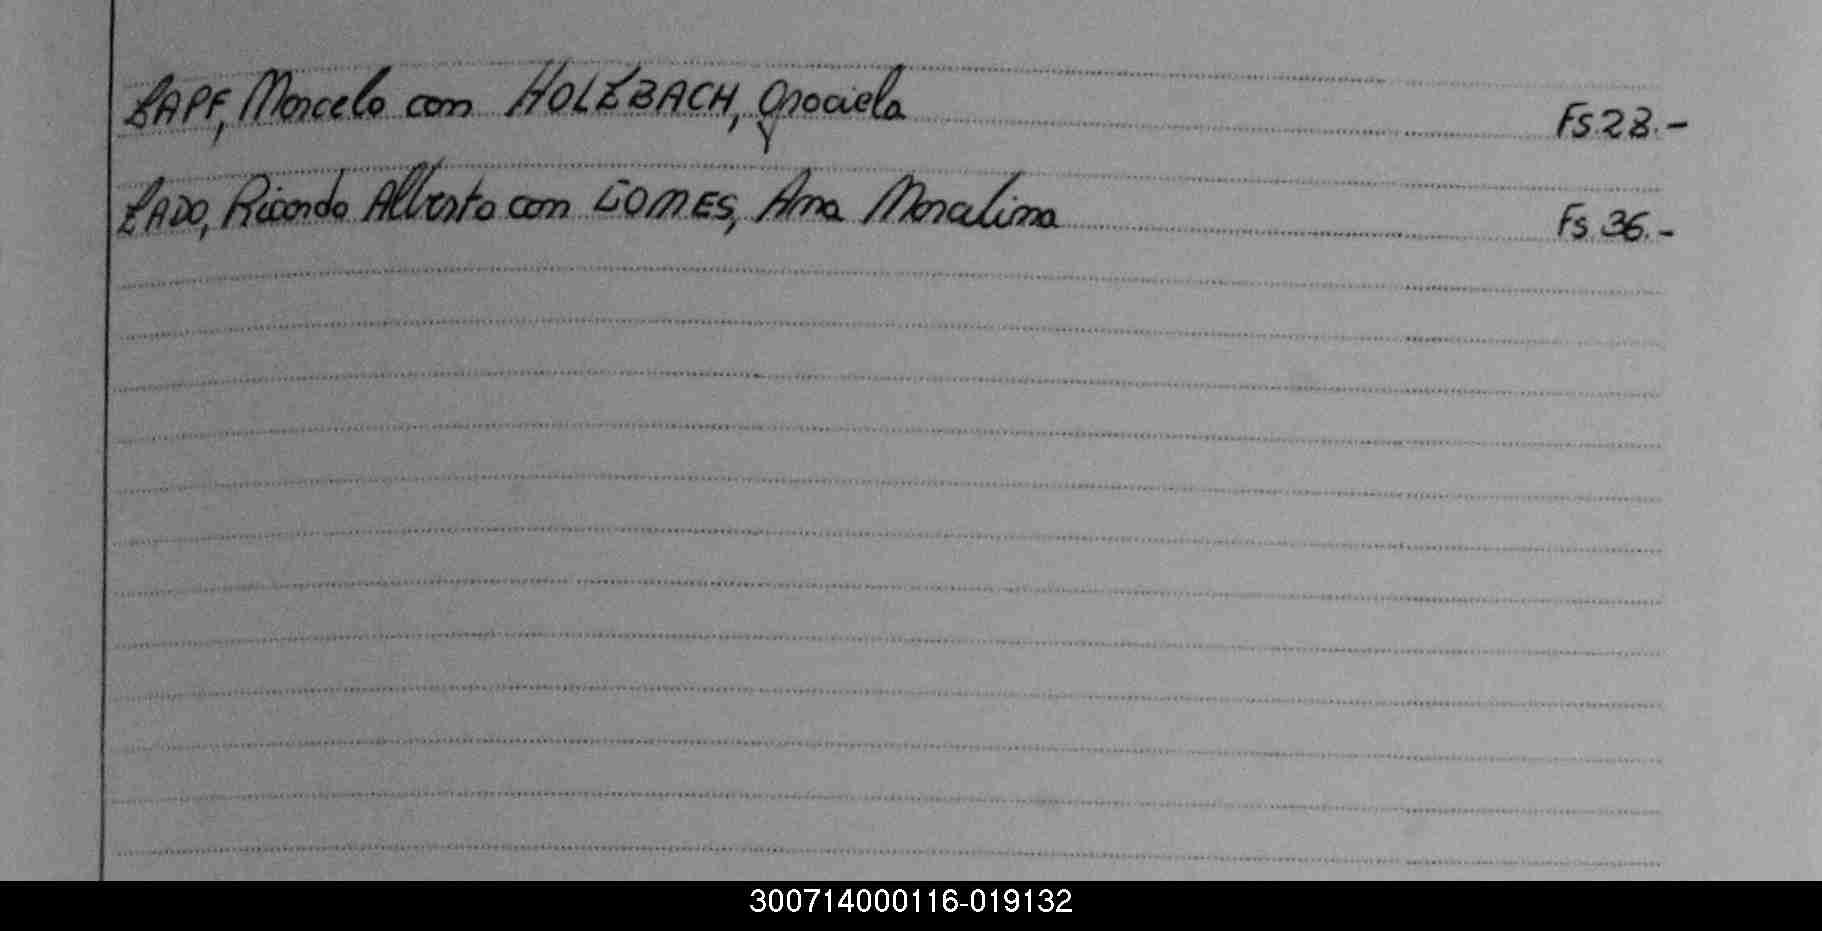 ZAPF, Marcelo con HOLZBACH, Graciela Fs.28.-
ZADO, Ricardo Alberto con GOMES, Ana Marcelina Fs.36.-
300714000116-019132